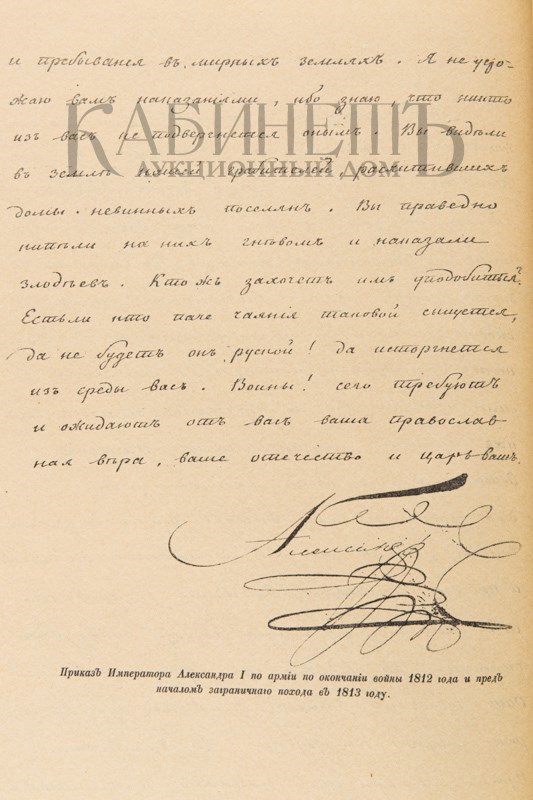 и пребыванея въ мирныхъ земляхъ. Я не угро-
жаю вамъ наказаніями, ибо знаю, что никто
изъ васъ не подвергнется онымъ. Вы видѣли
въ землѣ нашей грабителей, расхитившихъ
домы невинныхъ поселянъ. Вы праведно
кипѣли на нихъ гнѣвомъ и наказали
злодѣевъ. Кто жъ захочетъ имъ уподобиться.
Естьли кто паче чаянія таковой сыщется,
да не будетъ онъ руской! да исторгнется
изъ среды васъ. Воины! сего требуютъ
и ожидаютъ отъ васъ ваша православ
ная вѣра, ваше отечество и царь вашъ.
Александръ
КАБИНЕТЪ
АУКЦИОННЫЙ ДОМ
Приказъ Императора Александра I по арміи по окончаніи войны 1812 года и предъ
началомъ заграничнаго похода въ 1813 году.